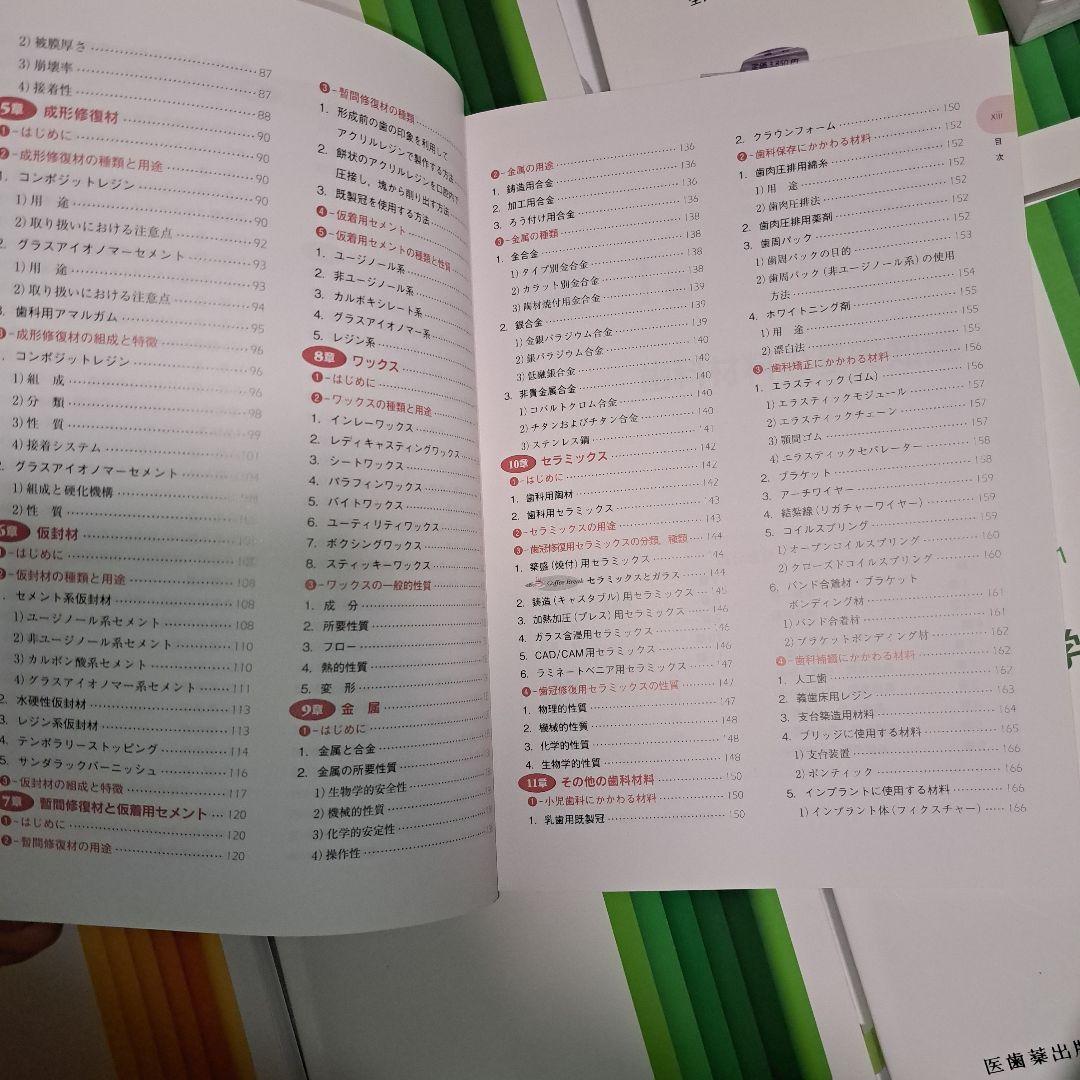 2) 被膜厚さ 87
3) 崩壊率 87
4) 接着性 88
5章 成形修復材 90
❶-はじめに 90
❷-成形修復材の種類と用途 90
1. コンポジットレジン 90
1) 用 途 90
2) 取り扱いにおける注意点 92
2. グラスアイオノマーセメント 93
1) 用 途 93
2) 取り扱いにおける注意点 94
3. 歯科用アマルガム 95
❸-成形修復材の組成と特徴 96
1. コンポジットレジン 96
1) 組 成 96
2) 分 類 98
3) 性 質 99
4) 接着システム 101
2. グラスアイオノマーセメント
1) 組成と硬化機構
2) 性 質
6章 仮封材
❶-はじめに
❷-仮封材の種類と用途 108
1. セメント系仮封材 108
1) ユージノール系セメント 108
2) 非ユージノール系セメント 110
3) カルボン酸系セメント 110
4) グラスアイオノマー系セメント 111
2. 水硬性仮封材 113
3. レジン系仮封材 113
4. テンポラリーストッピング 114
5. サンダラックバーニッシュ 116
❸-仮封材の組成と特徴 117
7章 暫間修復材と仮着用セメント 120
❶-はじめに 120
❷-暫間修復材の用途 120
❸-暫間修復材の種類
1. 形成前の歯の印象を利用して
アクリルレジンで製作する方法
2. 餅状のアクリルレジンを口腔内で
圧接し，塊から削り出す方法
3. 既製冠を使用する方法
❹-仮着用セメント
❺-仮着用セメントの種類と性質
1. ユージノール系
2. 非ユージノール系
3. カルボキシレート系
4. グラスアイオノマー系
5. レジン系
8章 ワックス
❶-はじめに
❷-ワックスの種類と用途
1. インレーワックス
2. レディキャスティングワックス
3. シートワックス
4. パラフィンワックス
5. バイトワックス
6. ユーティリティワックス
7. ボクシングワックス
8. スティッキーワックス
❸-ワックスの一般的性質
1. 成 分
2. 所要性質
3. フロー
4. 熱的性質
5. 変 形
9章 金 属
❶-はじめに
1. 金属と合金
2. 金属の所要性質
1) 生物学的安全性
2) 機械的性質
3) 化学的安定性
4) 操作性
❷-金属の用途 136
1. 鋳造用合金 136
2. 加工用合金 136
3. ろう付け用合金 136
❸-金属の種類 138
1. 金合金 138
1) タイプ別金合金 138
2) カラット別金合金 138
3) 陶材焼付用金合金 139
2. 銀合金 139
1) 金銀パラジウム合金 139
2) 銀パラジウム合金 140
3) 低融銀合金 140
3. 非貴金属合金 140
1) コバルトクロム合金 140
2) チタンおよびチタン合金 140
3) ステンレス鋼 141
10章 セラミックス 142
❶-はじめに 142
1. 歯科用陶材 142
2. 歯科用セラミックス 143
❷-セラミックスの用途 143
❸-歯冠修復用セラミックスの分類，種類 144
1. 築盛（焼付）用セラミックス 144
Coffee Break セラミックスとガラス 144
2. 鋳造（キャスタブル）用セラミックス 145
3. 加熱加圧（プレス）用セラミックス 146
4. ガラス含浸用セラミックス 146
5. CAD/CAM用セラミックス 146
6. ラミネートベニア用セラミックス 147
❹-歯冠修復用セラミックスの性質 147
1. 物理的性質 147
2. 機械的性質 148
3. 化学的性質 148
4. 生物学的性質 148
11章 その他の歯科材料 150
❶-小児歯科にかかわる材料 150
1. 乳歯用既製冠 150
2. クラウンフォーム 150
❷-歯科保存にかかわる材料 152
1. 歯肉圧排用綿糸 152
1) 用 途 152
2) 歯肉圧排法 152
2. 歯肉圧排用薬剤 152
3. 歯周パック 152
1) 歯周パックの目的 153
2) 歯周パック（非ユージノール系）の使用
方法 154
4. ホワイトニング剤 155
1) 用 途 155
2) 漂白法 155
❸-歯科矯正にかかわる材料 156
1. エラスティック（ゴム） 156
1) エラスティックモジュール 157
2) エラスティックチェーン 157
3) 顎間ゴム 157
4) エラスティックセパレーター 158
2. ブラケット 158
3. アーチワイヤー 159
4. 結紮線（リガチャーワイヤー） 159
5. コイルスプリング 159
1) オープンコイルスプリング 160
2) クローズドコイルスプリング 160
6. バンド合着材・ブラケット
ボンディング材 161
1) バンド合着材 161
2) ブラケットボンディング材 162
❹-歯科補綴にかかわる材料 162
1. 人工歯 162
2. 義歯床用レジン 163
3. 支台築造用材料 164
4. ブリッジに使用する材料 165
1) 支台装置 166
2) ポンティック 166
5. インプラントに使用する材料 166
1) インプラント体（フィクスチャー） 166
xiii
目次
定価 3,850円
医歯薬出版